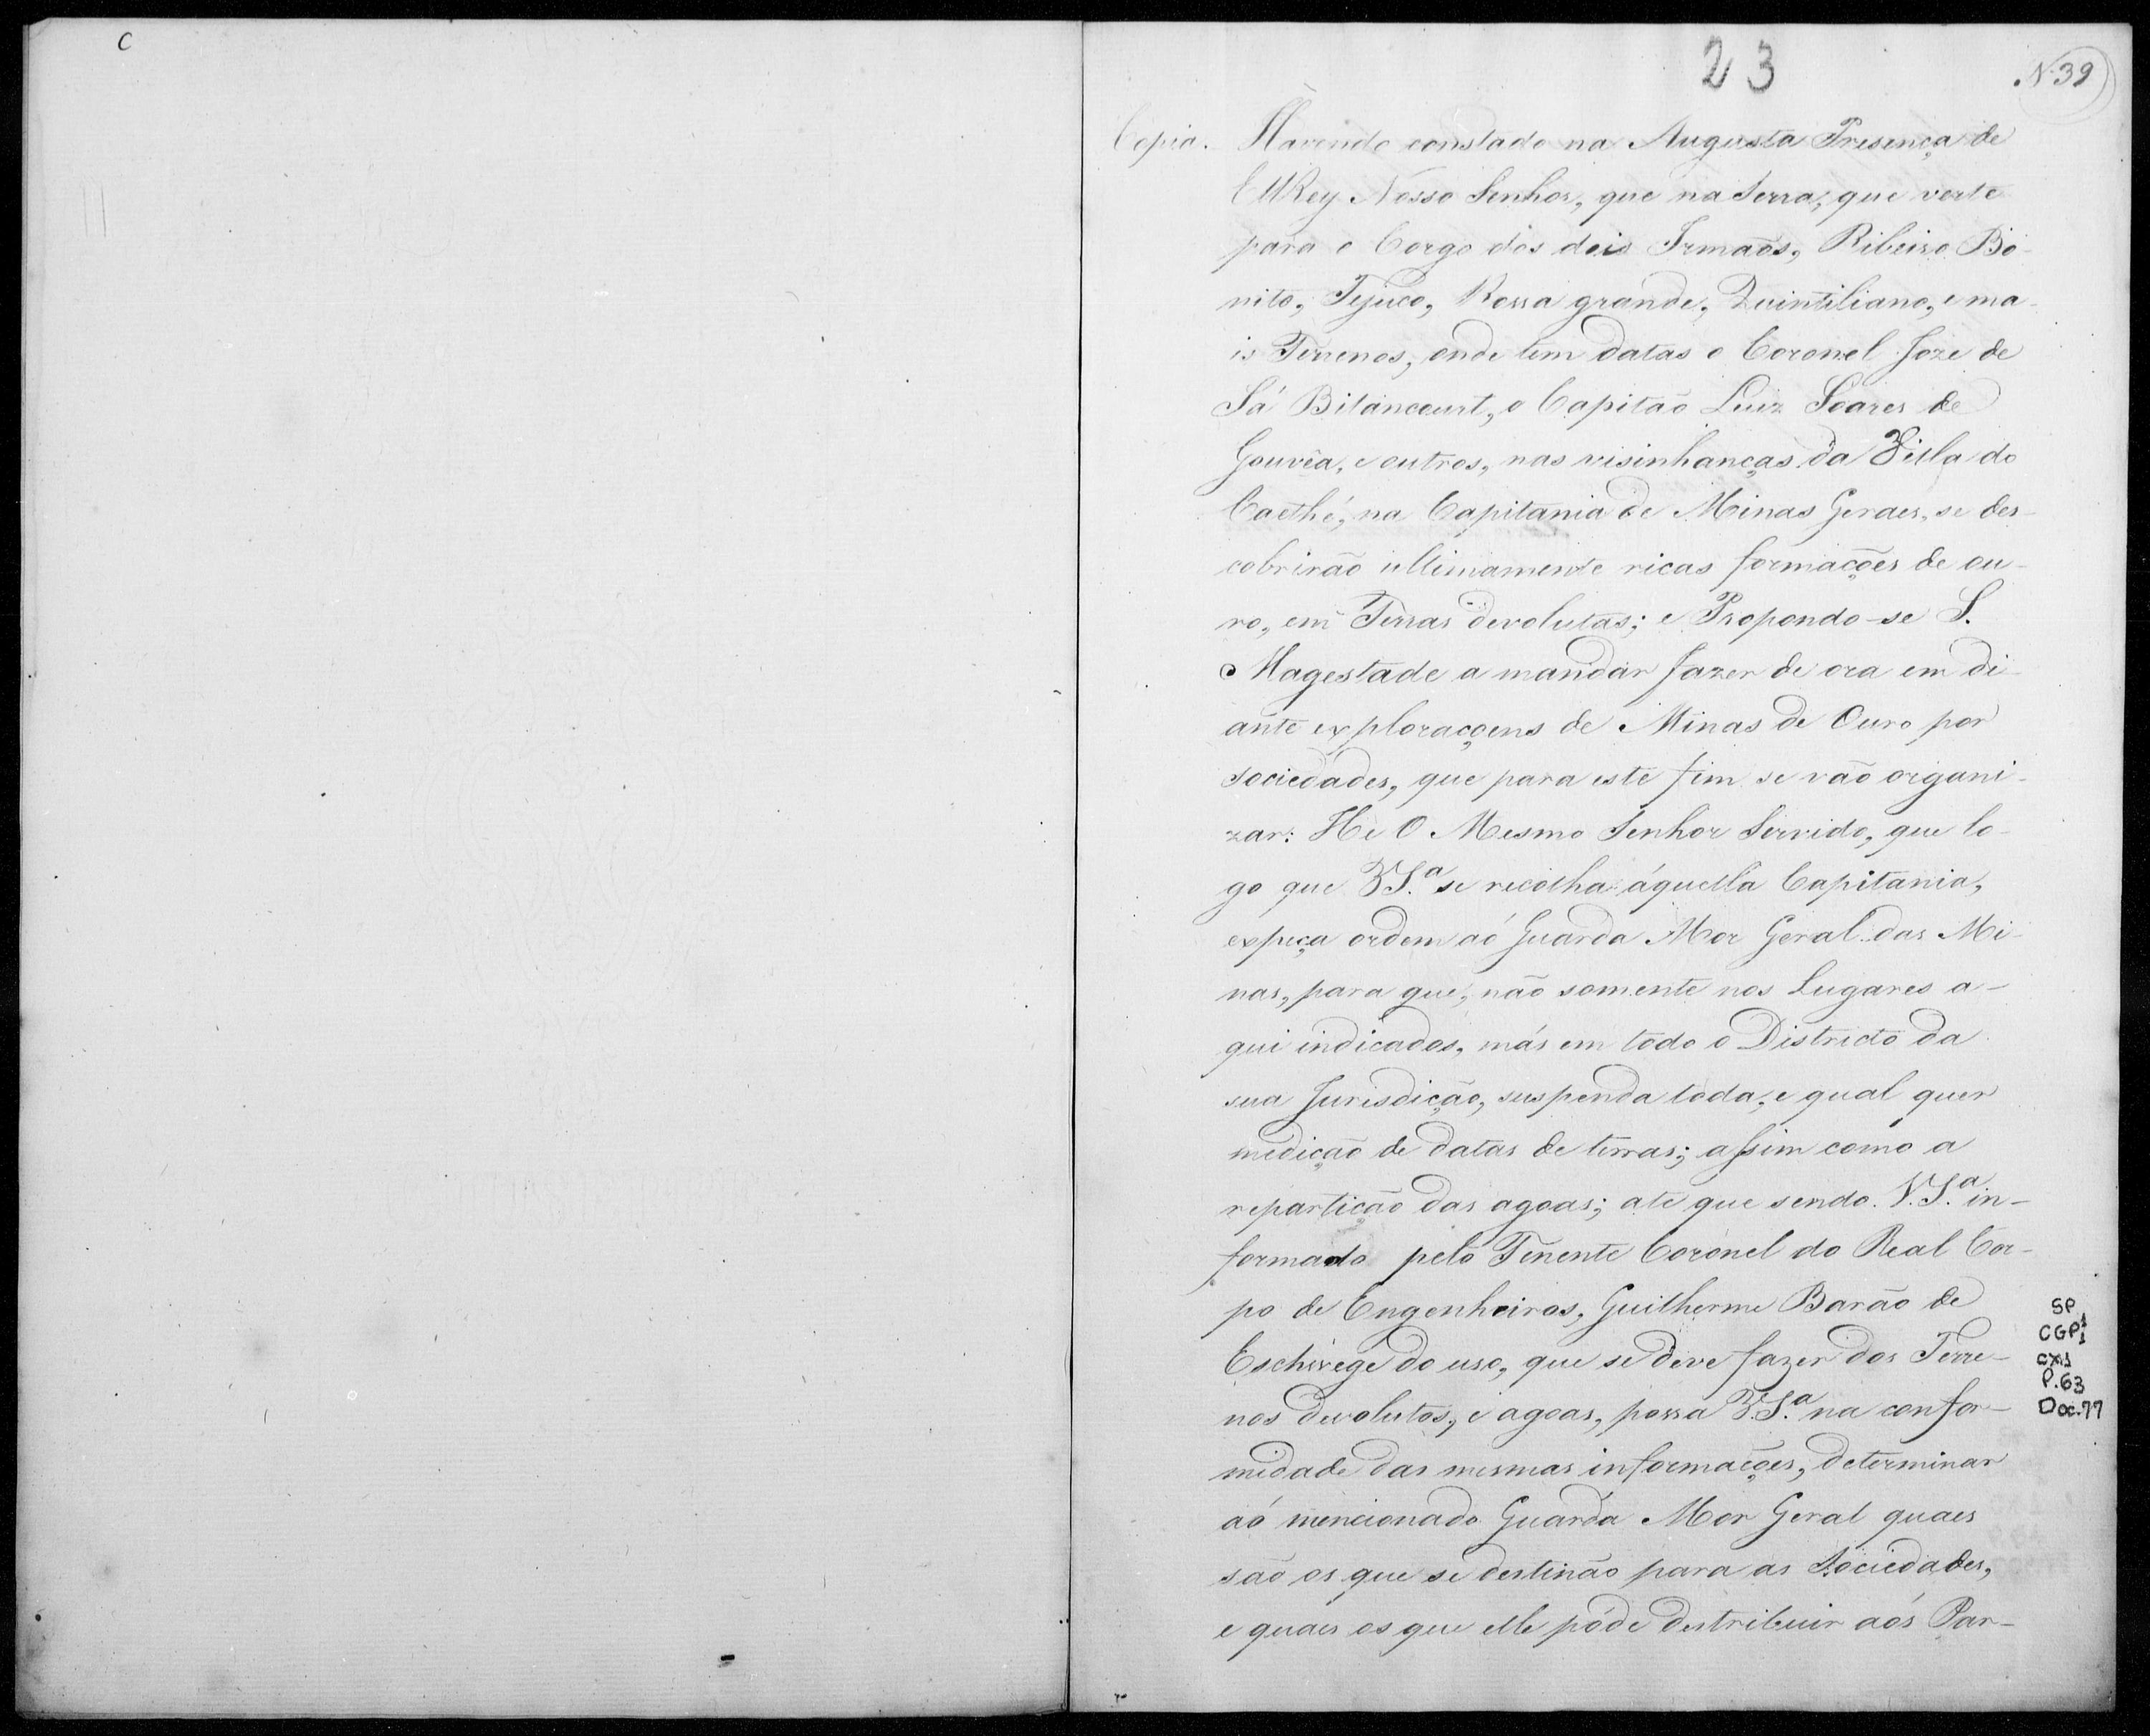 C
23
N. 39
Copia. Havendo constado na Augusta Presença de
ElRey Nosso Senhor, que na Serra, que verte
para o Corgo dos dois Irmaõs, Ribeiro Bo-
nito, Tejuco, Rossa grande, Quintiliano, e ma-
is Terrenos, onde tem datas o Coronel Joze de
Sá Bitancourt, o Capitaõ Luiz Soares de
Gouvêa, e outros, nas visinhanças da Villa do
Caethé, na Capitania de Minas Geraes, se des-
cobrirão ultimamente ricas formações de ou-
ro, em Terras devolutas; e Propondo-se S.
Magestade a mandar fazer de ora em di-
ante exploraçoens de Minas de Ouro por
sociedades, que para este fim se vão organi-
zar: He O Mesmo Senhor Servido, que lo-
go que V.S.ª se recolha áquella Capitania,
expeça ordem aó Guarda Mor Geral das Mi-
nas, para que, não somente nos Lugares a-
qui indicados, más em todo o Districto da
sua Jurisdição, suspenda toda, e qual quer
medição de datas de terras; assim como a
repartição das agoas; até que sendo V.S.ª in-
formado pelo Tenente Coronel do Real Cor-
po de Engenheiros, Guilherme Barão de
Eschwege do uso, que se deve fazer dos Terre-
nos devolutos, e agoas, possa V.S.ª na confor-
midade das mesmas informações, determinar
aó mencionado Guarda Mor Geral quaes
são os que se destinão para as Sociedades,
e quaes os que elle póde destribuir aós Par-
SP
CGP1
CX.1
P.63
Doc.77